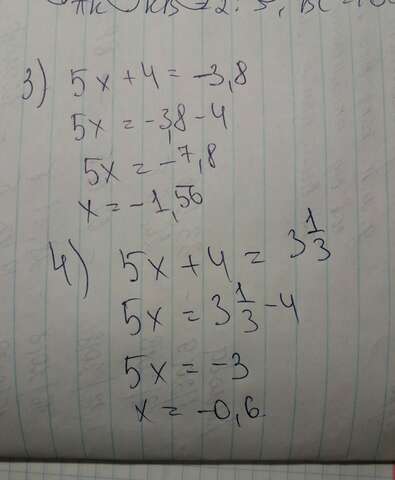 3) 5x + 4 = -3,8
5x = -3,8 - 4
5x = -7,8
x = -1,56
4) 5x + 4 = 3 1/3
5x = 3 1/3 - 4
5x = -3
x = -0,6